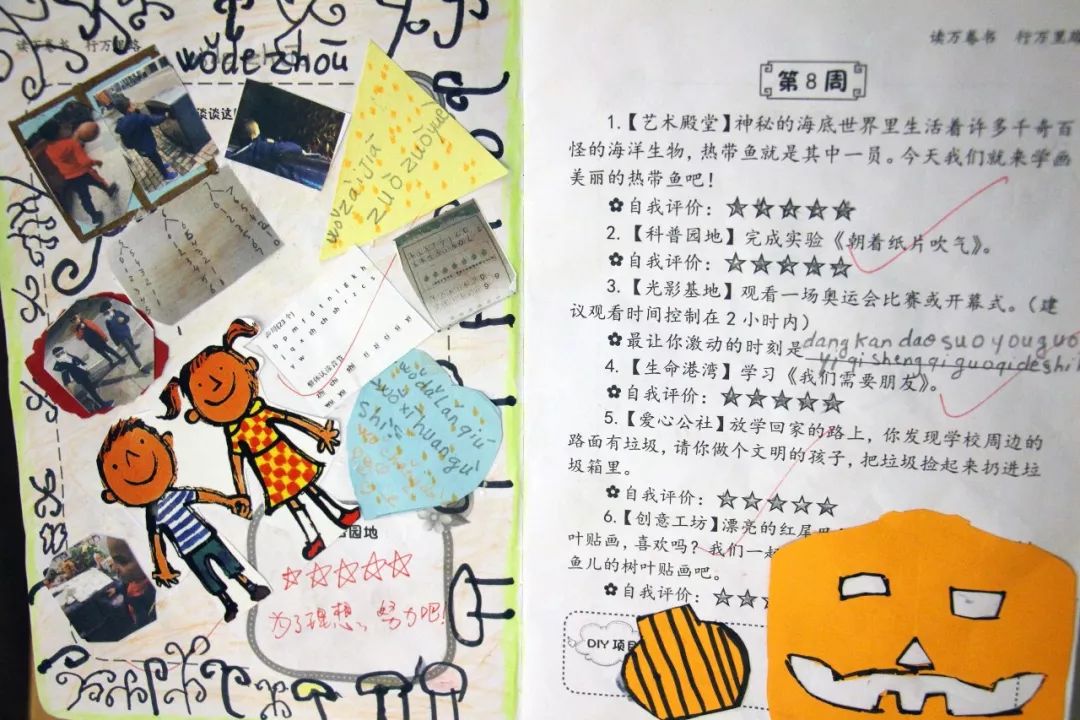 读万卷书 行万里路
wǒde zhōu
谈谈这
wǒ zàijiā
zuò zuòyuè
声母(23个)
b p m f d t n l g k h
j q x zh ch sh r z c s
y w
整体认读音节
dǎ lán qiú
wǒ xǐ huan
园地
☆☆☆☆☆
为了理想、努力吧!
读万卷书 行万里路
第8周
1.【艺术殿堂】神秘的海底世界里生活着许多千奇百
怪的海洋生物，热带鱼就是其中一员。今天我们就来学画
美丽的热带鱼吧！
✿自我评价：☆☆☆☆☆
2.【科普园地】完成实验《朝着纸片吹气》。
✿自我评价：☆☆☆☆☆
3.【光影基地】观看一场奥运会比赛或开幕式。（建
议观看时间控制在2小时内）
✿最让你激动的时刻是dang kan dao suo you guo
yi qi sheng qi guo qi de shi
4.【生命港湾】学习《我们需要朋友》。
✿自我评价：☆☆☆☆☆
5.【爱心公社】放学回家的路上，你发现学校周边的
路面有垃圾，请你做个文明的孩子，把垃圾捡起来扔进垃
圾箱里。
✿自我评价：☆☆☆☆☆
6.【创意工坊】漂亮的红尾
叶贴画，喜欢吗？我们一起
鱼儿的树叶贴画吧。
✿自我评价：☆☆
DIY 项目